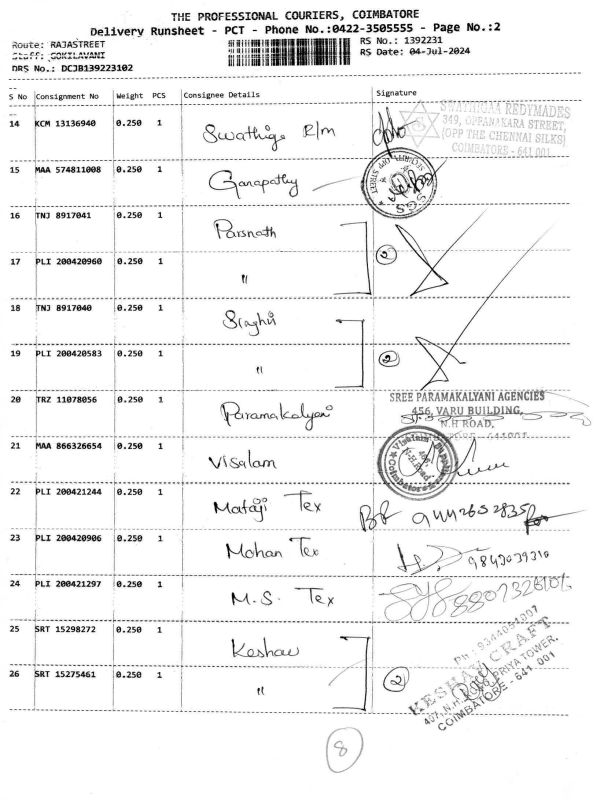 THE PROFESSIONAL COURIERS, COIMBATORE
Delivery Runsheet - PCT - Phone No.:0422-3505555 - Page No.:2
Route: RAJASTREET RS No.: 1392231
Staff: GOKILAVANI RS Date: 04-Jul-2024
DRS No.: DCJB139223102
S No Consignment No Weight PCS Consignee Details Signature
14 KCM 13136940 0.250 1 Swathiga R/m
SWATHIGAA REDYMADES
349, OPPANAKARA STREET,
(OPP THE CHENNAI SILKS)
COIMBATORE - 641 001
15 MAA 574811008 0.250 1 Ganapathy
SGS SECURITY OPP STREET
16 TNJ 8917041 0.250 1 Parsnath
17 PLI 200420960 0.250 1 " 2
18 TNJ 8917040 0.250 1 Singhii
19 PLI 200420583 0.250 1 " 2
20 TRZ 11078056 0.250 1 Paramakalyani
SREE PARAMAKALYANI AGENCIES
456, VARU BUILDING,
N.H ROAD,
641001
21 MAA 866326654 0.250 1 Visalam
Visalam
N.H.Road
Coimbatore
22 PLI 200421244 0.250 1 Mataji Tex 9442652835
23 PLI 200420906 0.250 1 Mohan Tex 9843039310
24 PLI 200421297 0.250 1 M.S. Tex
25 SRT 15298272 0.250 1 Keshav
26 SRT 15275461 0.250 1 " 2
KESHAV CRAFT
PRIYA TOWER,
COIMBATORE - 641 001
8